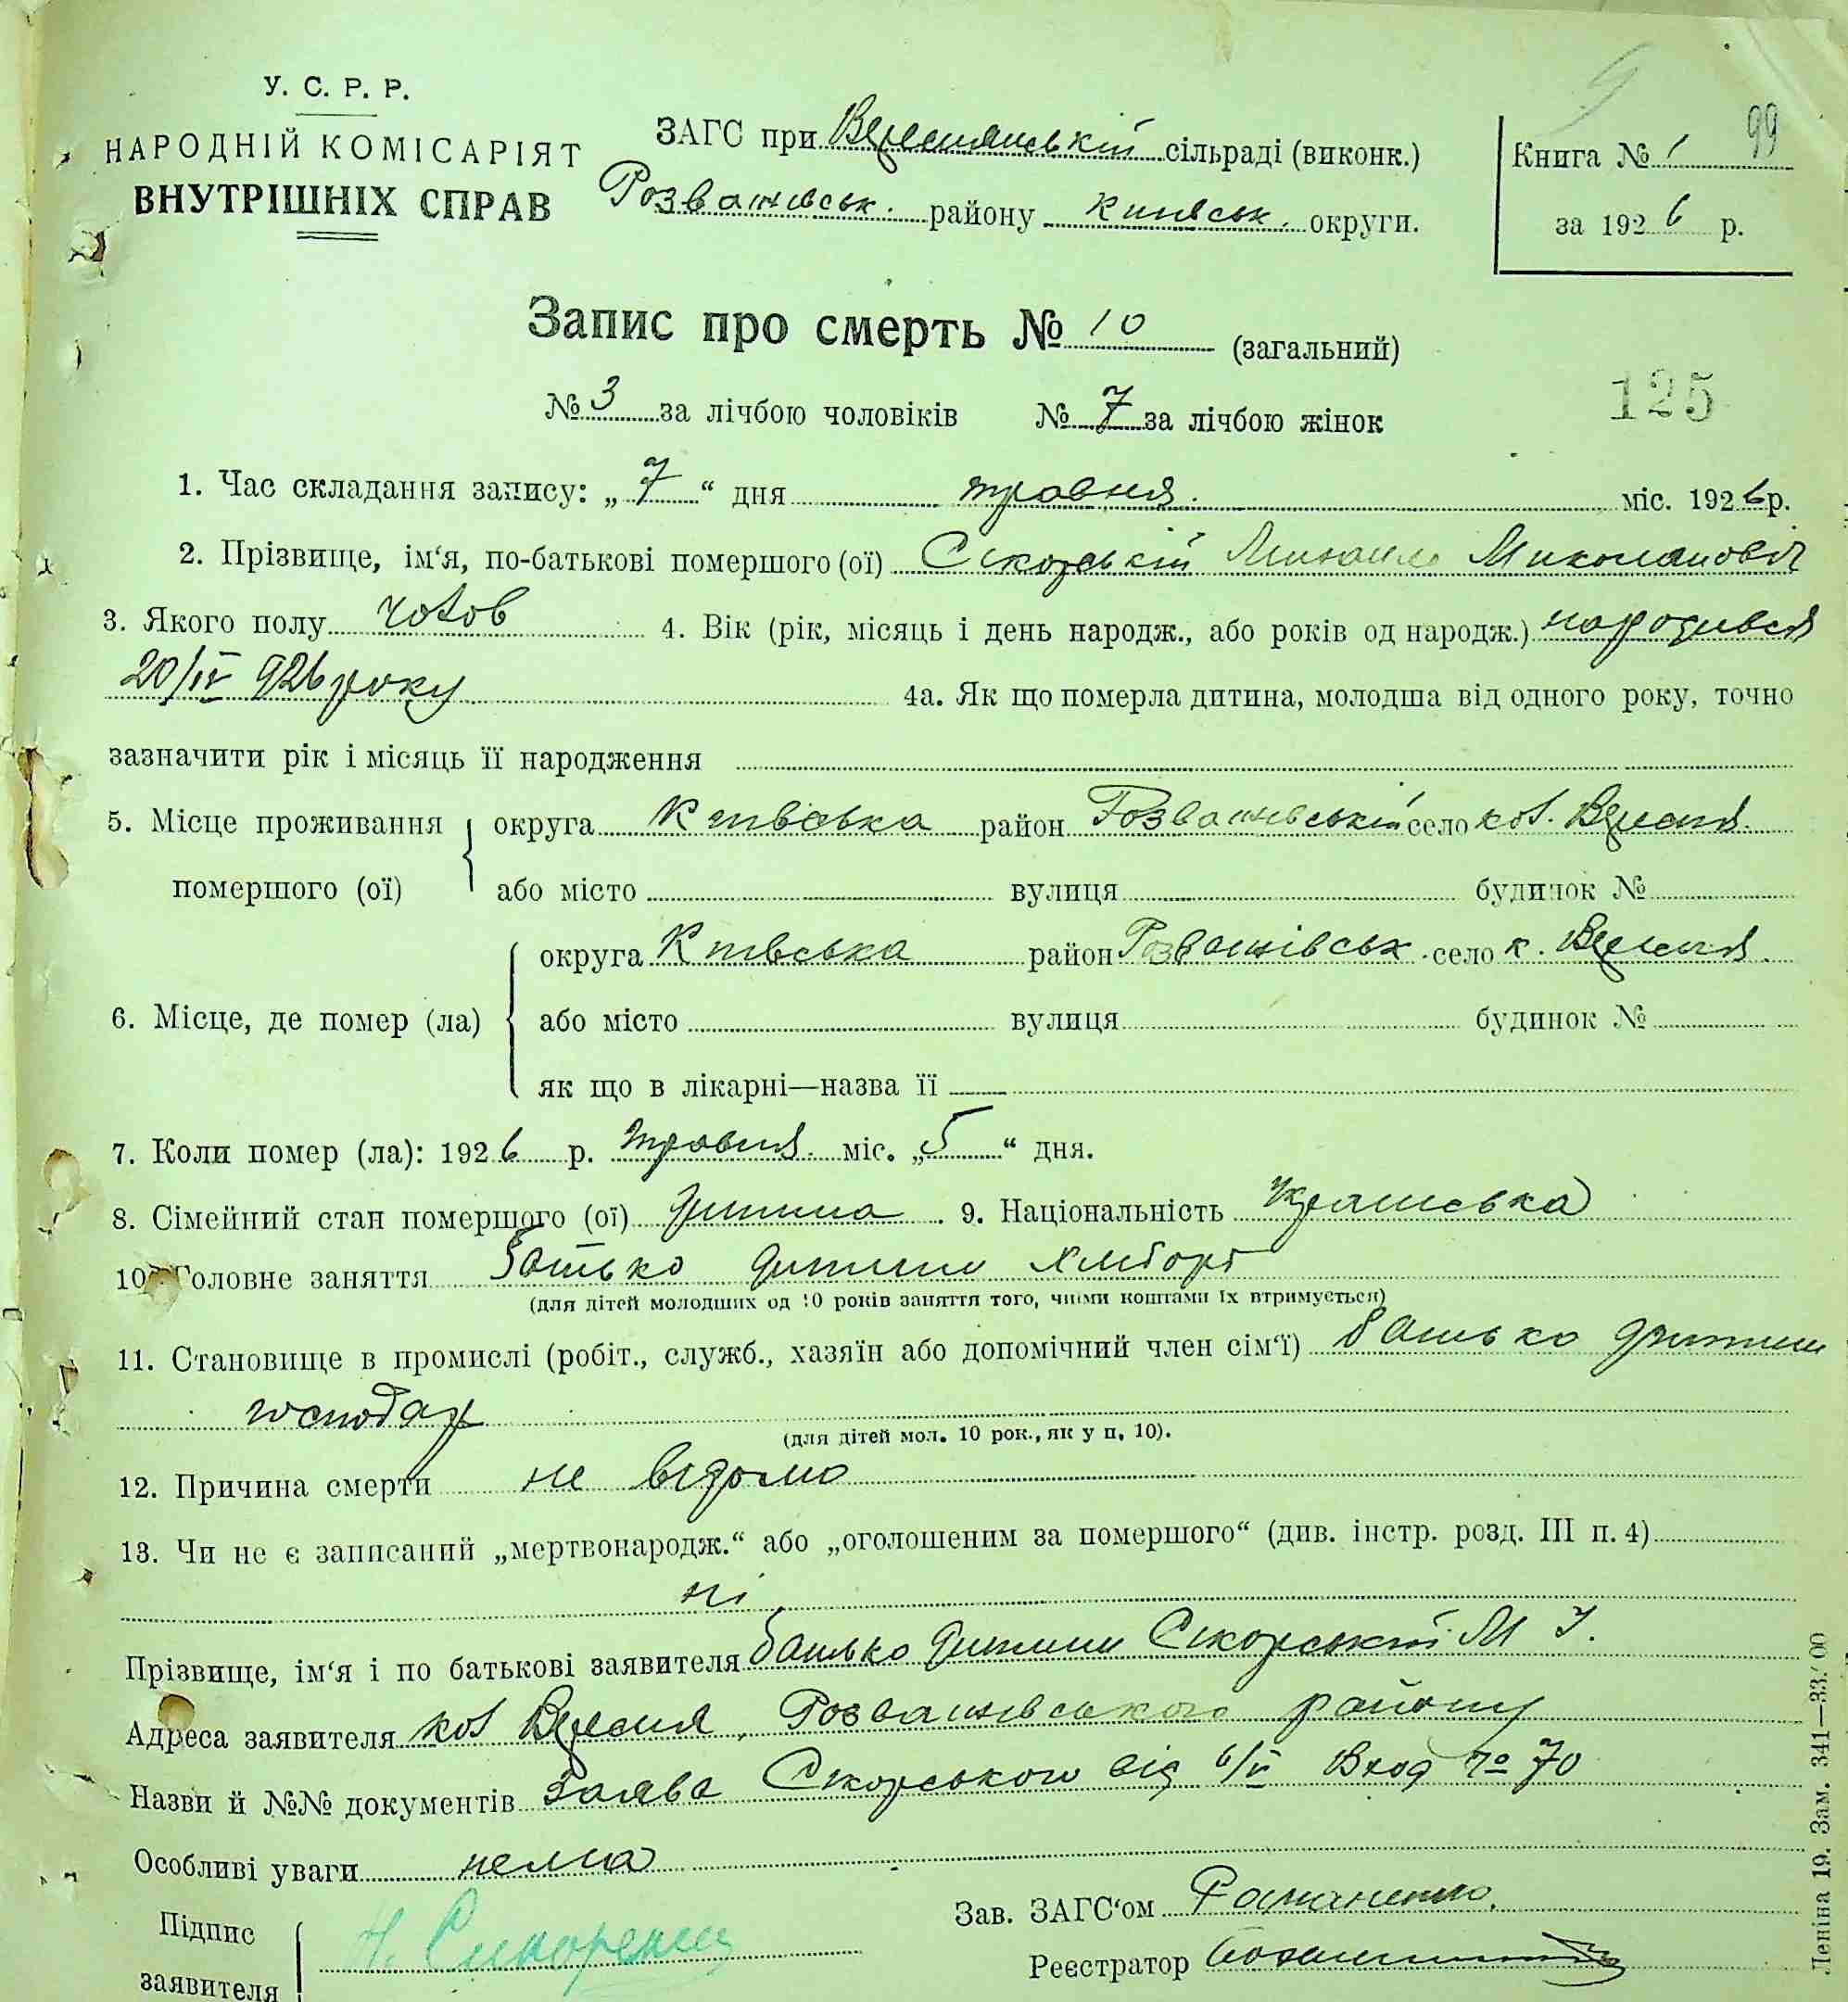 У. С. Р. Р.
НАРОДНІЙ КОМІСАРІЯТ
ВНУТРІШНІХ СПРАВ
ЗАГС при Вересянській сільраді (виконк.)
Розважівськ. району Київськ. округи.
Книга № 1 99
за 1926 р.
Запис про смерть № 10 (загальний)
№ 3 за лічбою чоловіків № 7 за лічбою жінок
125
1. Час складання запису: „7“ дня травня. міс. 1926 р.
2. Прізвище, ім‘я, по-батькові помершого (ої) Сікорський Михаило Миколайовіч
3. Якого полу чолов 4. Вік (рік, місяць і день народж., або років од народж.) народився
20/IV 926 року 4а. Як що померла дитина, молодша від одного року, точно
зазначити рік і місяць її народження
5. Місце проживання помершого (ої) округа Київська район Розважівський село кол. Вересня.
або місто вулиця будинок №
6. Місце, де помер (ла) округа Київська район Розважівськ. село к. Вересня.
або місто вулиця будинок №
як що в лікарні—назва її
7. Коли помер (ла): 1926 р. травня міс. „5“ дня.
8. Сімейний стан помершого (ої) дитина. 9. Національність Українська
10. Головне заняття батько дитини хлібороб
(для дітей молодших од 10 років заняття того, чиїми коштами їх втримується)
11. Становище в промислі (робіт., служб., хазяїн або допомічний член сім‘ї) батько дитини
господарь
(для дітей мол. 10 рок., як у п. 10).
12. Причина смерти не відомо
13. Чи не є записаний „мертвонародж.“ або „оголошеним за помершого“ (див. інстр. розд. III п. 4)
ні
Прізвище, ім‘я і по батькові заявителя батько дитини Сікорський М І.
Адреса заявителя кол Вересня, Розважівського району
Назви й №№ документів Заява Сікорського від 6/V Вход № 70
Особливі уваги нема
Підпис
заявителя
Зав. ЗАГС‘ом
Реєстратор
Леніна 19. Зам. 341—33.